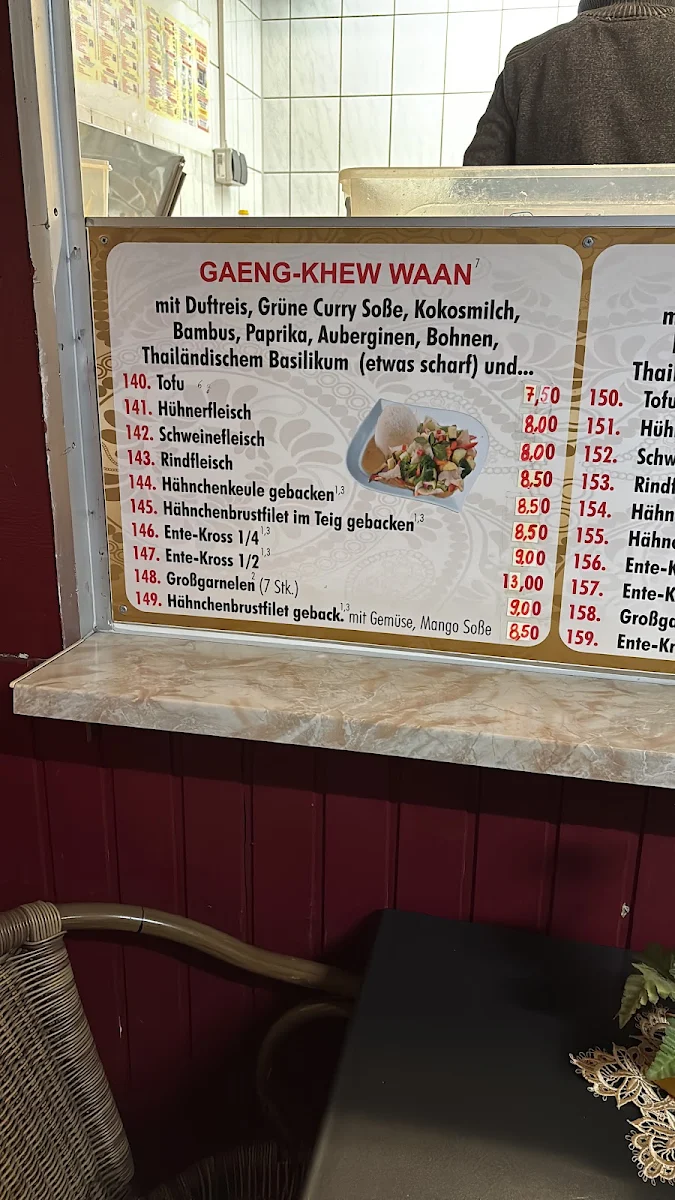 GAENG-KHEW WAAN 7
mit Duftreis, Grüne Curry Soße, Kokosmilch,
Bambus, Paprika, Auberginen, Bohnen,
Thailändischem Basilikum (etwas scharf) und...
140. Tofu 7,50
141. Hühnerfleisch 8,00
142. Schweinefleisch 8,00
143. Rindfleisch 8,50
144. Hähnchenkeule gebacken 1,3 8,50
145. Hähnchenbrustfilet im Teig gebacken 1,3 8,50
146. Ente-Kross 1/4 1,3 9,00
147. Ente-Kross 1/2 1,3 13,00
148. Großgarnelen 2 (7 Stk.) 9,00
149. Hähnchenbrustfilet geback. 1,3 mit Gemüse, Mango Soße 8,50
m
Thai
150. Tofu
151. Hüh
152. Schw
153. Rindf
154. Hähn
155. Hähn
156. Ente-K
157. Ente-K
158. Großga
159. Ente-Kr